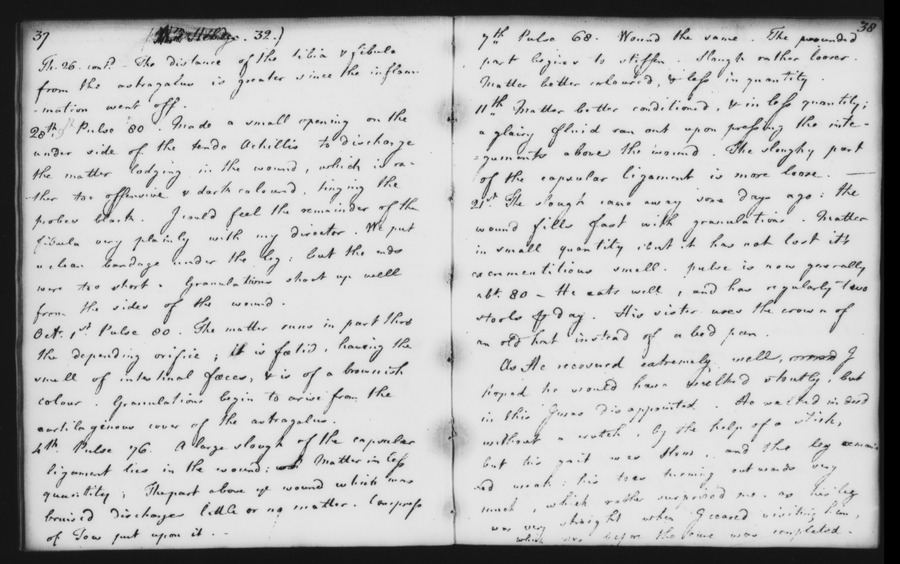 37
32.)
Th. 26. cont.d The distance of the tibia & fibula
from the astragalus is greater since the inflam-
-mation went off.
28th. Pulse 80. Made a small opening on the
under side of the tendo Achillis to discharge
the matter lodging in the wound, which is ra-
-ther too offensive & dark coloured, tinging the
probes black. I could feel the remainder of the
fibula very plainly with my director. We put
a clean bandage under the leg: but the ends
were too short. Granulations shoot up well
from the sides of the wound.
Oct. 1st Pulse 80. The matter runs in part thro
the depending orifice; it is fœtid, having the
smell of intestinal fœces, & is of a brownish
colour. Granulations begin to arise from the
cartilagenous cover of the astragalus.
4th. Pulse 76. A large slough of the capsular
ligament lies in the wound: Matter in less
quantity; The part above ye wound which was
bruised discharges little or no matter. Compress
of Tow put upon it. -
38
7th Pulse 68. Wound the same. The wounded
part begins to stiffen. Slough rather looser.
Matter better coloured, & less in quantity.
11th Matter better conditioned, & in less quantity;
a glairy fluid ran out upon pressing the inte-
-guments above the wound. The sloughy part
of the capsular ligament is more loose. —
21st The slough came away some days ago: the
wound fills fast with granulations. Matter
in small quantity; but it has not lost its
excrementitious smell. pulse is now generally
abt. 80 - He eats well, and has regularly two
stools day. His sister uses the crown of
an old hat instead of a bed pan.
As He recovered extremely well, I
hoped he would have walked stoutly, but
in this I was disappointed. He walked in deed
without a crutch, by the help of a stick,
but his gait was slow, and the leg remain-
-ed weak: his toes turning outwards very
much, which rather surprised me, as his leg
was very straight when I ceased visiting him,
which was before the cure was completed.